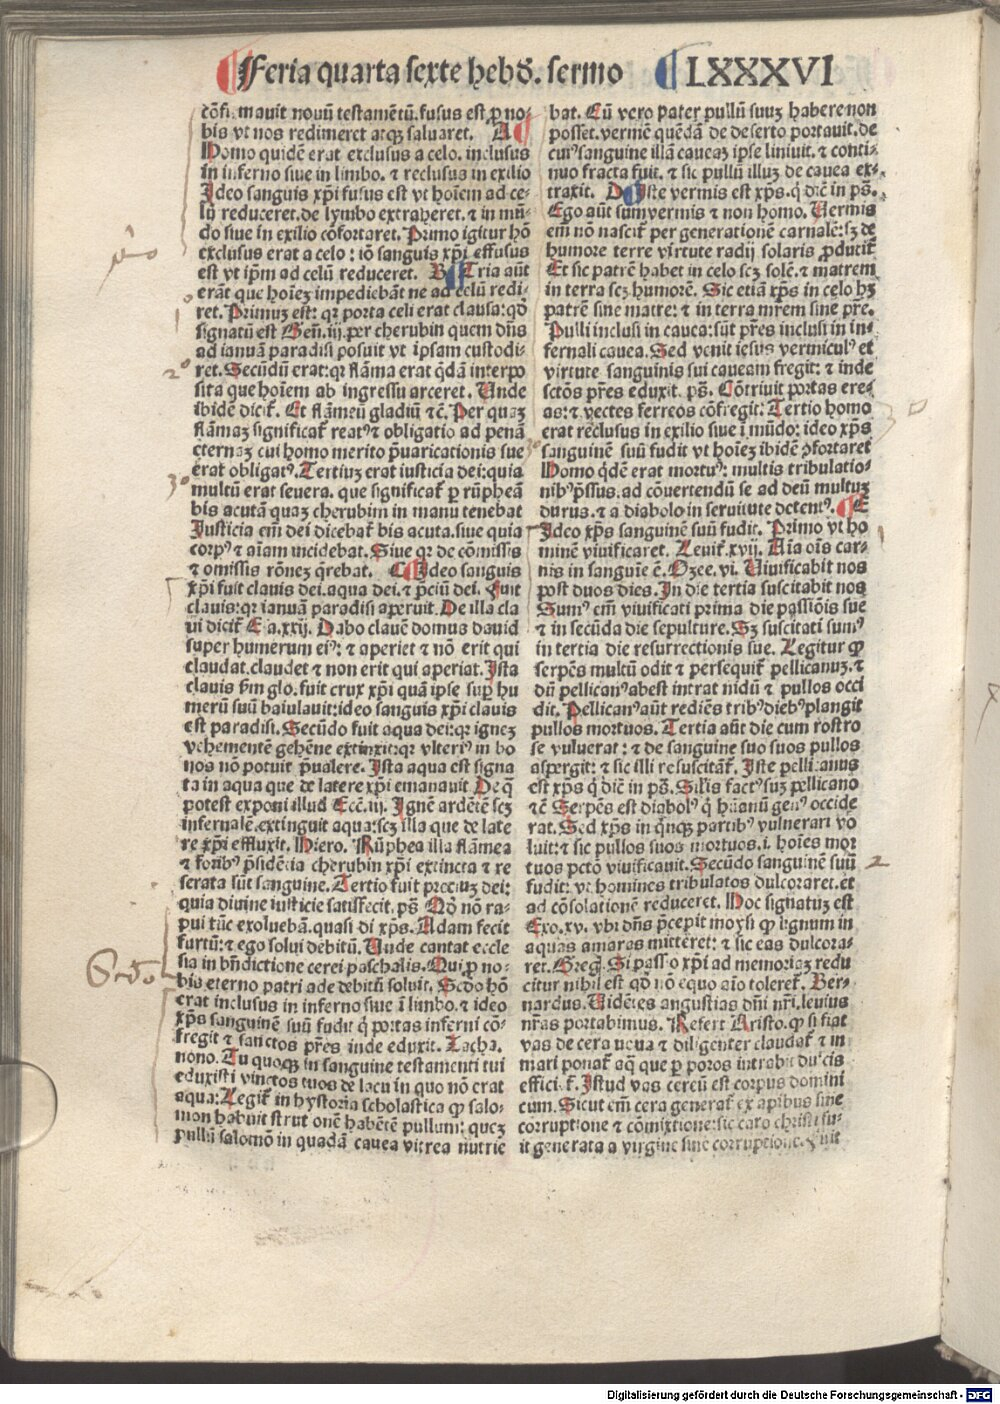 Feria quarta sexte hebd̄. sermo LXXXVI
cōfirmauit nouū testamētū. fusus est ꝓ no-
bis vt nos redimeret atqꝫ saluaret. A
Homo quidē erat exclusus a celo. inclusus
in inferno siue in limbo. ⁊ reclusus in exilio
Ideo sanguis xp̄i fusus est vt hoīem ad ce-
lū reduceret. de lymbo extraheret. ⁊ in mū-
do siue in exilio cōfortaret. Primo igitur hō
exclusus erat a celo: iō sanguis xp̄i effusus
est vt ip̄m ad celū reduceret. B Tria aūt
erāt que hoīeꝫ impediebāt ne ad celū redi-
ret. Primuꝫ est: qꝛ porta celi erat clausa: qd̄
signatū est Geñ. iij. per cherubin quem dn̄s
ad ianuā paradisi posuit vt ipsam custodi-
ret. Secūdū erat: qꝛ flāma erat q̄dā interpo
sita que hoīem ab ingressu arceret. Unde
ibidē dicit᷑. Et flāmeū gladiū ⁊c̄. Per quaꝫ
flāmaꝫ significat᷑ reatꝰ ⁊ obligatio ad penā
eternaꝫ cui homo merito p̄uaricationis sue
erat obligatꝰ. Tertiuꝫ erat iusticia dei: quia
multū erat seuera. que significat᷑ ꝑ rūpheā
bis acutā quaꝫ cherubim in manu tenebat
Iusticia em̄ dei dicebat᷑ bis acuta. siue quia
corpꝰ ⁊ aīam incidebat. Siue qꝛ de cōmissis
⁊ omissis rōneꝫ q̄rebat. C Ideo sanguis
xp̄i fuit clauis dei. aqua dei. ⁊ p̄ciū dei. Fuit
clauis: qꝛ ianuā paradisi aperuit. De illa cla
ui dicit᷑ Esa. xxij. Dabo clauē domus dauid
super humerum eiꝰ: ⁊ aperiet ⁊ nō erit qui
claudat. claudet ⁊ non erit qui aperiat. Ista
clauis ẜm glo. fuit crux xp̄i quā ipse suꝑ hu
merū suū baiulauit: ideo sanguis xp̄i clauis
est paradisi. Secūdo fuit aqua dei: qꝛ igneꝫ
vehementē gehēne extinxit: qꝛ vlteriꝰ in bo
nos nō potuit p̄ualere. Ista aqua est signa
ta in aqua que de latere xp̄i emanauit. De q̄
potest exponi illud Ecc̄. iij. Ignē ardētē scꝫ
infernalē. extinguit aqua: scꝫ illa que de late
re xp̄i effluxit. Hiero. Rūphea illa flāmea
⁊ foribꝰ p̄sidētia cherubin xp̄i extincta ⁊ re
serata sūt sanguine. Tertio fuit preciuꝫ dei:
quia diuine iusticie satisfecit. pꝰ̄ Qd̄ nō ra-
pui tūc exoluebā. quasi di. xp̄s. Adam fecit
furtū: ⁊ ego solui debitū. Unde cantat eccle
sia in bn̄dictione cerei paschalis. Qui ꝓ no-
bis eterno patri ade debitū soluit. Scd̄o hō
erat inclusus in inferno siue ī limbo. ⁊ ideo
xp̄s sanguinē suū fudit q̇ portas inferni cō-
fregit ⁊ sanctos pr̄es inde eduxit. Zacha.
nono. Tu quoqꝫ in sanguine testamenti tui
eduxisti vinctos tuos de lacu in quo nō erat
aqua: Legit᷑ in hystoria scholastica ꝙ salo-
mon habuit strutionē habētē pullum: queꝫ
pullū salomō in quadā cauea vitrea nutrie
bat. Cū vero pater pullū suuꝫ habere non
posset. vermē quēdā de deserto portauit. de
cuiꝰ sanguine illā caueaꝫ ipse liniuit. ⁊ conti-
nuo fracta fuit. ⁊ sic pullū illuꝫ de cauea ex-
traxit. D Iste vermis est xp̄s. q̇ dic̄ in ps̄.
Ego aūt sum vermis ⁊ non homo. Vermis
em̄ nō nascit᷑ per generationē carnalē: sꝫ de
humore terre virtute radij solaris ꝓducit᷑
Et sic patrē habet in celo scꝫ solē. ⁊ matrem
in terra scꝫ humorē. Sic etiā xp̄s in celo hꝫ
patrē sine matre: ⁊ in terra mr̄em sine pr̄e.
Pulli inclusi in cauea: sūt pr̄es inclusi in in-
fernali cauea. Sed venit iesus vermiculꝰ et
virtute sanguinis sui caueam fregit: ⁊ inde
sctōs pr̄es eduxit. ps̄. Cōtriuit portas ere-
as: ⁊ vectes ferreos cōfregit: Tertio homo
erat reclusus in exilio siue ī mūdo: ideo xp̄s
sanguinē suū fudit vt hoīeꝫ ibidē ꝯfortaret
Homo q̇dē erat mortuꝰ: multis tribulatio-
nibꝰ p̄ssus. ad cōuertendū se ad deū multuꝫ
durus. ⁊ a diabolo in seruitute detentꝰ. E
Ideo xp̄s sanguinē suū fudit. Primo vt ho
minē viuificaret. Leuit᷑. xvij. Aīa oīs car-
nis in sanguīe ē. Ozee. vi. Viuificabit nos
post duos dies. In die tertia suscitabit nos
Sumꝰ em̄ viuificati prima die passiōis sue
⁊ in secūda die sepulture. Sꝫ suscitati sumꝰ
in tertia die resurrectionis sue. Legitur ꝙ
serpēs multū odit ⁊ persequit᷑ pellicanuꝫ. ⁊
dū pellicanꝰ abest intrat nidū ⁊ pullos occi
dit. Pellicanꝰ aūt rediēs tribꝰ diebꝰ plangit
pullos mortuos. Tertia aūt die cum rostro
se vulnerat: ⁊ de sanguine suo suos pullos
aspergit: ⁊ sic illi resuscitāt᷑. Iste pellicanus
est xp̄s q̇ dic̄ in ps̄. Sil̄is factꝰ suꝫ pellicano
⁊c̄ Serpēs est diabolꝰ q̇ hūanū genꝰ occide
rat. Sed xp̄s in q̇nqꝫ partibꝰ vulnerari vo
luit: ⁊ sic pullos suos mortuos. i. hoīes mor
tuos pctō viuificauit. Secūdo sanguinē suū
fudit: vt homines tribulatos dulcoraret. et
ad cōsolationē reduceret. Hoc signatuꝫ est
Exo. xv. vbi dn̄s p̄cepit moysi ꝙ lignum in
aquas amaras mitteret: ⁊ sic eas dulcora-
ret. Greg. Si passio xp̄i ad memoriaꝫ redu
citur nihil est qd̄ nō equo aīo toleret᷑. Ber-
nardus. Videntes angustias dn̄i nr̄i. leuius
nr̄as portabimus. Refert Aristo. ꝙ si fiat
vas de cera noua ⁊ diligenter claudat᷑ ⁊ in
mari ponat᷑ aq̄ que ꝑ poros intrabit dulcis
efficit᷑. Istud vas cereū est corpus domini
cum. Sicut em̄ cera generat᷑ ex apibus sine
corruptione ⁊ cōmixtione: sic caro christi fu-
it generata a virgine sine corruptione. Fuit
pͥo
1º
2º
3º
Scd̄o
3º
1
2
Digitalisierung gefördert durch die Deutsche Forschungsgemeinschaft - DFG